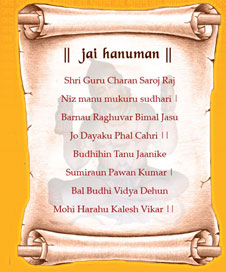 || jai hanuman ||
Shri Guru Charan Saroj Raj
Niz manu mukuru sudhari |
Barnau Raghuvar Bimal Jasu
Jo Dayaku Phal Cahri ||
Budhihin Tanu Jaanike
Sumiraun Pawan Kumar |
Bal Budhi Vidya Dehun
Mohi Harahu Kalesh Vikar ||